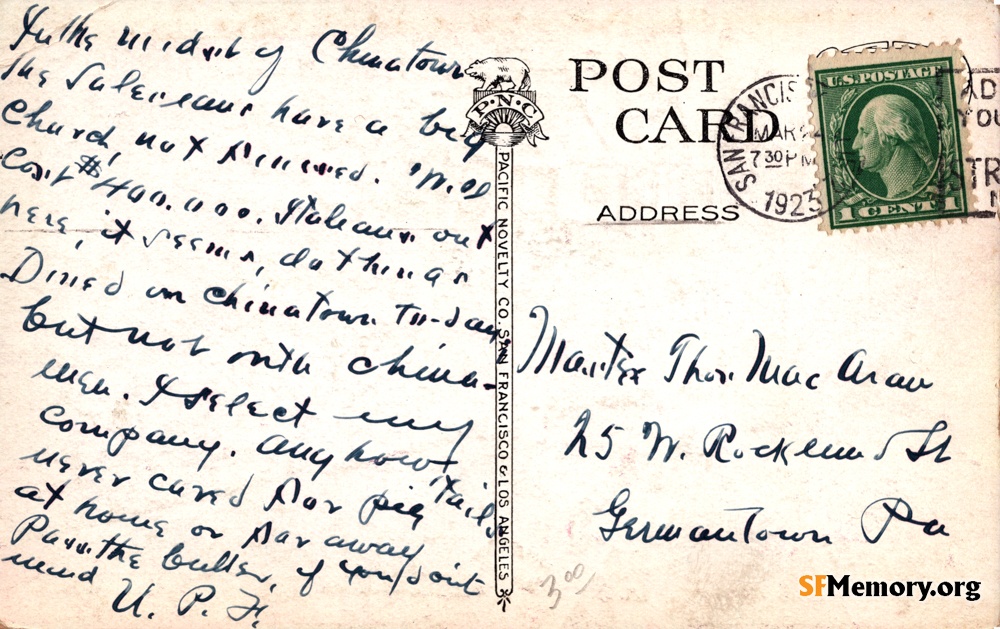 In the midst of Chinatown
the Salesians have a big
Church, not finished. Will
cost $400.000. Italians out
here, it seems, do things
Dined in Chinatown to-day
but not with China-
men. I select my
company. Anyhow I
never cared for pig tails
at home or far away
Pass the butter, if you don't
mind
U. P. F.
P.N.C.
PACIFIC NOVELTY CO. SAN FRANCISCO & LOS ANGELES
POST
CARD
ADDRESS
SAN FRANCIS
MAR
7 30 PM
1923
U.S. POSTAGE
1 CENT 1
AD
YOU
TR
N
Master Thos. Mac Aran
25 W. Rockland St
Germantown Pa
3.00
SFMemory.org